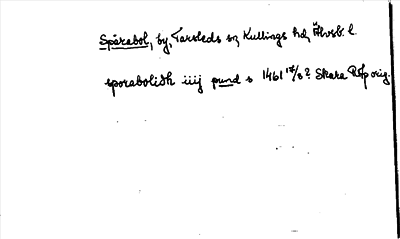 Spårabol, by, Tarsleds sn, Kullings hd, Älvsb. l.
sporabolidh iiij pund s 1461 17/8? Skara Rep orig.